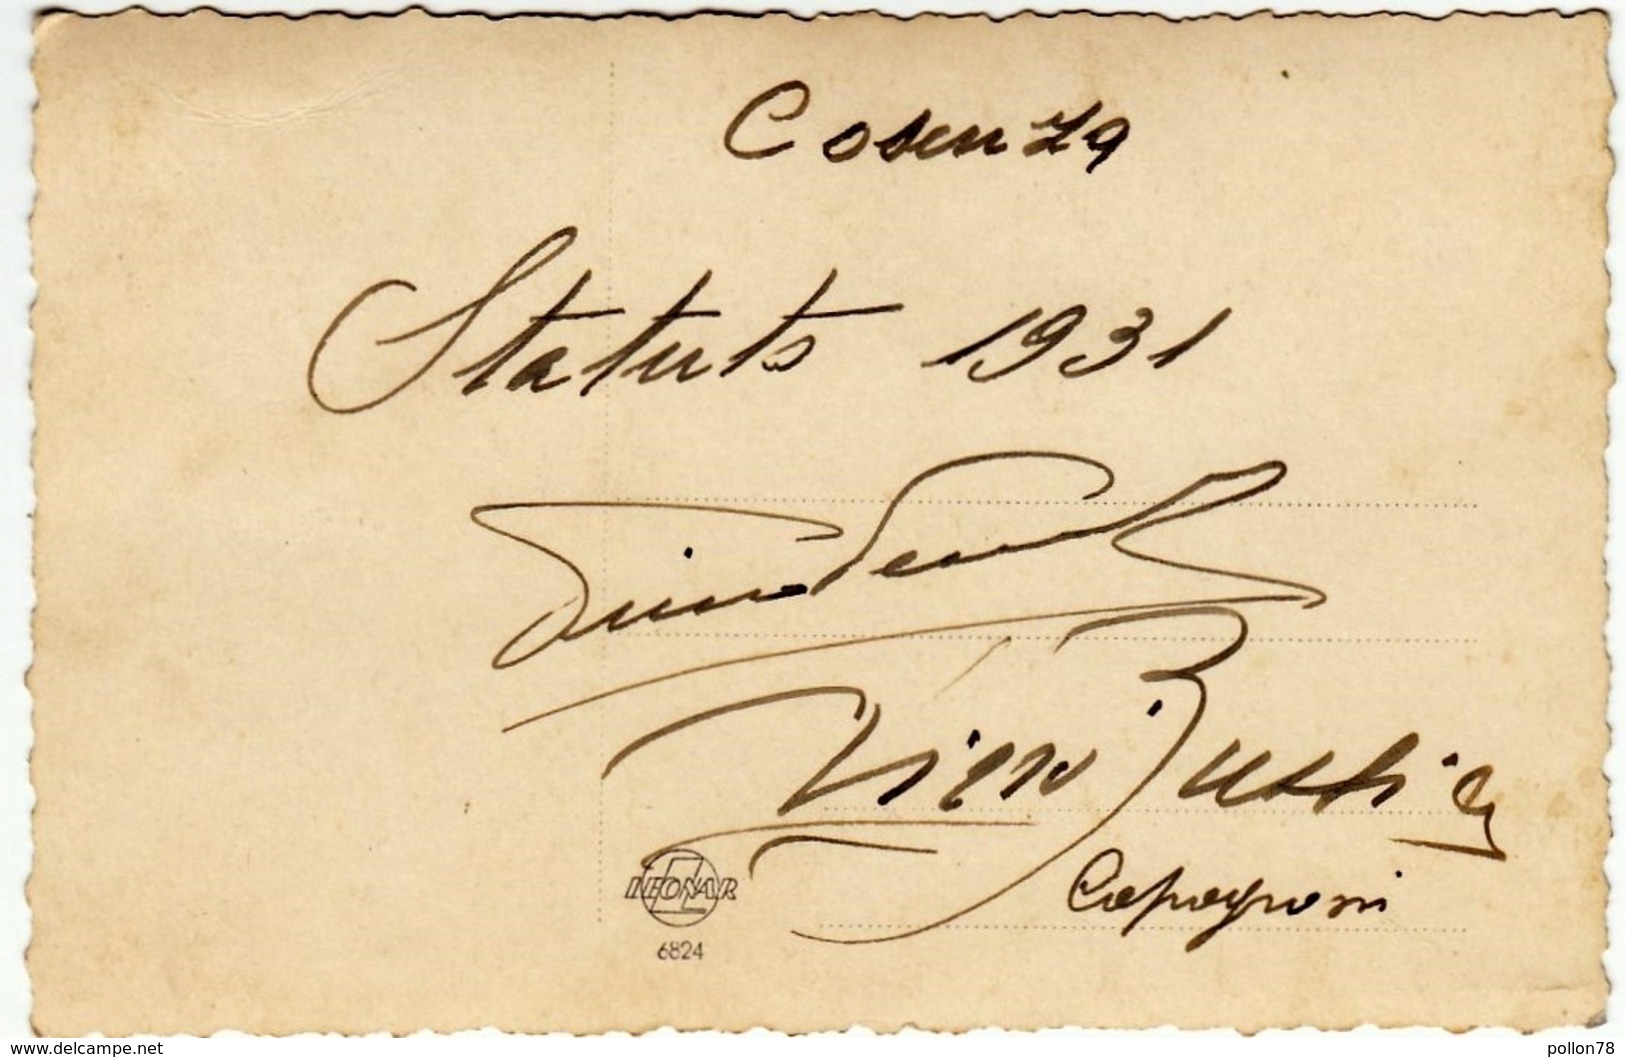 Cosenza
Statuts 1931
Piero Bustia
Capognoni
LEONAR
6824
www.delcampe.net
pollon78